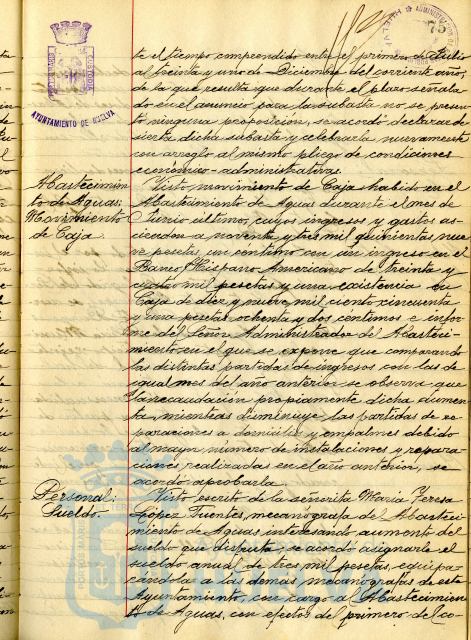 75
AYUNTAMIENTO DE HUELVA
te el tiempo comprendido entre el primero de Julio
al treinta y uno de Diciembre del corriente año,
de la que resulta que durante el plazo señala-
do en el anuncio para la subasta no se presen-
tó ninguna proposición, se acordó declarar de-
sierta dicha subasta y celebrarla nuevamente
con arreglo al mismo pliego de condiciones
económico-administrativas.
Abastecimien-
to de Aguas:
Movimiento
de Caja.
Visto, movimiento de Caja habido en el
Abastecimiento de Aguas durante el mes de
Junio último, cuyos ingresos y gastos as-
cienden a noventa y tres mil quinientas nue
ve pesetas un céntimo con un ingreso en el
Banco Hispano Americano de treinta y
cuatro mil pesetas y una existencia en
Caja de diez y nueve mil ciento cincuenta
y una pesetas ochenta y dos céntimos e infor-
me del Señor Administrador del Abasteci-
miento en el que se expone que comparando
las distintas partidas de ingresos con las de
igual mes del año anterior se observa que
la recaudación propiamente dicha aumen-
ta, mientras disminuye las partidas de re-
paraciones a domicilio y empalmes debido
al mayor número de instalaciones y repara-
ciones realizadas en el año anterior, se
acordó aprobarla.
Personal:
Sueldo.
Visto, escrito de la señorita María Teresa
López Fuentes, mecanógrafa del Abasteci-
miento de Aguas interesando aumento del
sueldo que disfruta; se acordó asignarle el
sueldo anual de tres mil pesetas, equipa-
rándola a las demás mecanógrafas de este
Ayuntamiento, con cargo al Abastecimien-
to de Aguas, con efectos del primero del co-